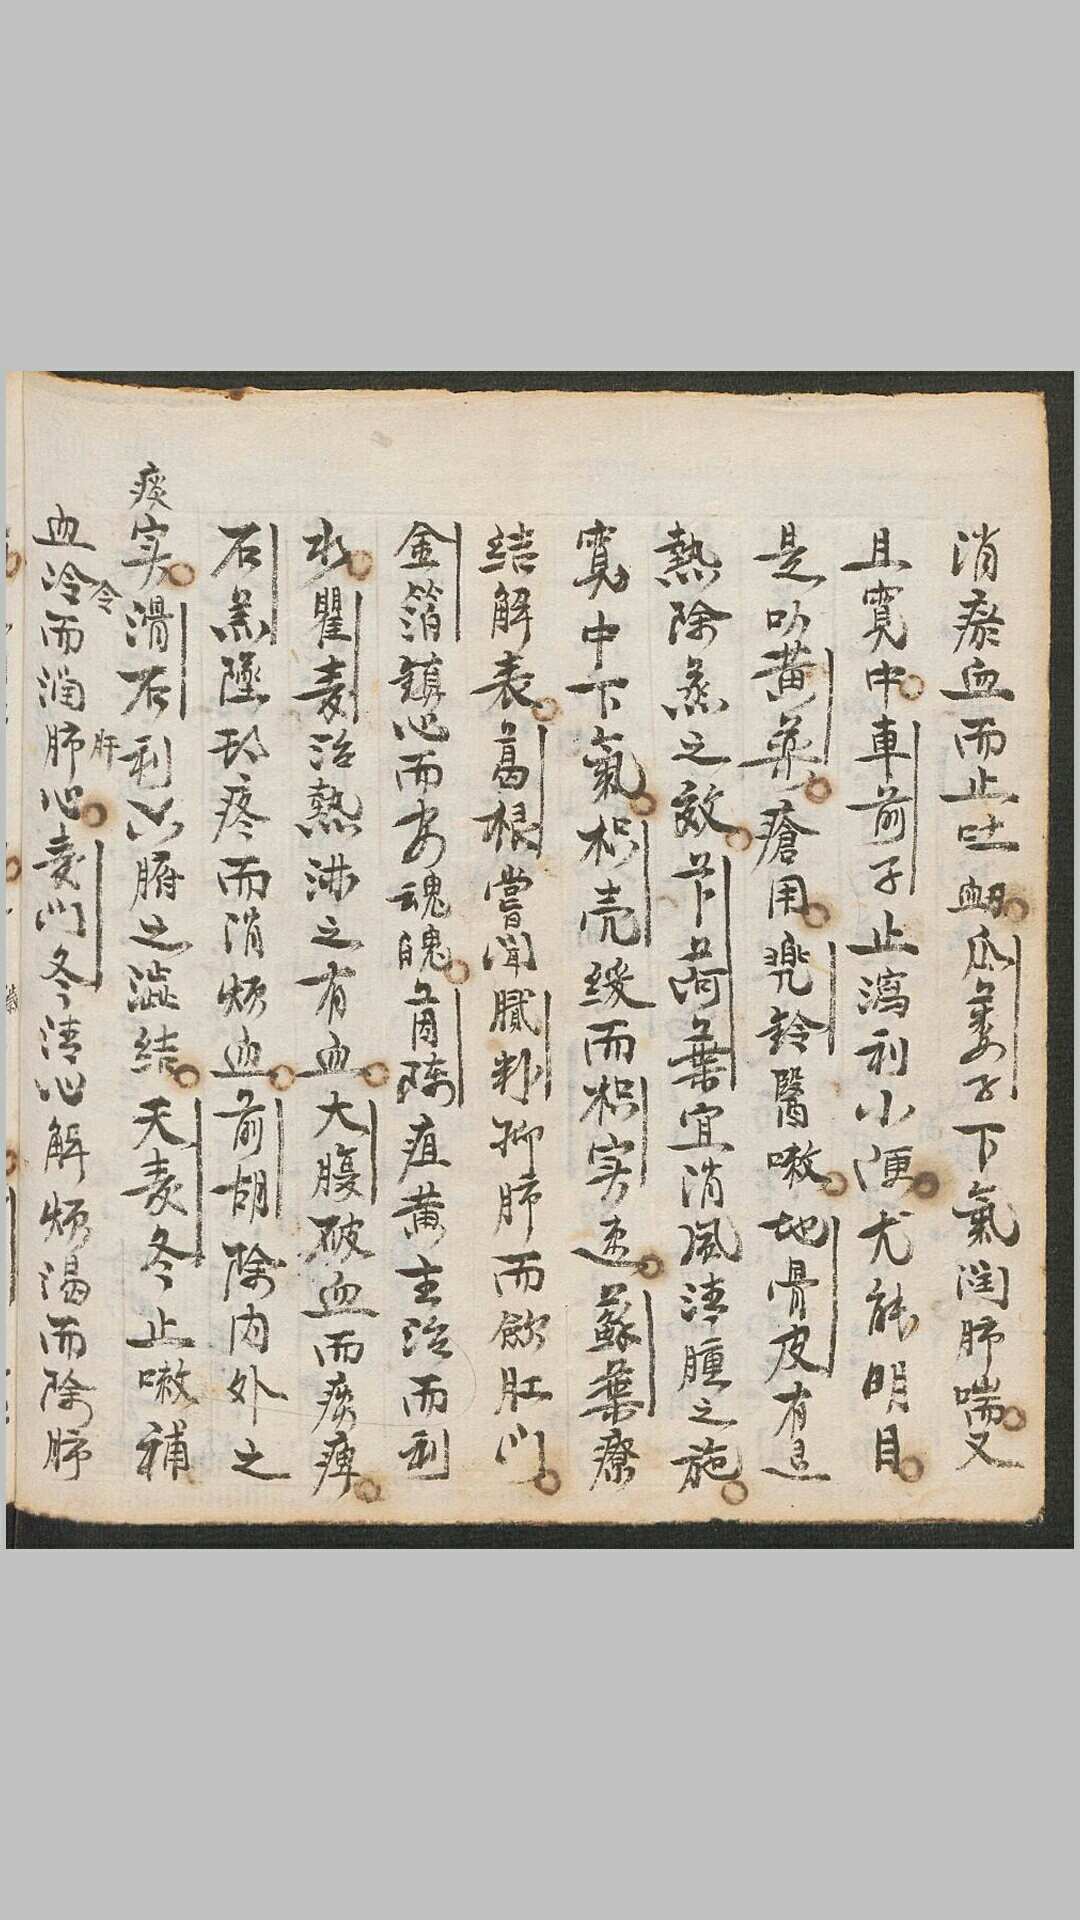 消瘀血而止吐衄瓜蔞子下氣潤肺喘又
且寬中車前子止瀉利小便尤能明目
是叻黃蘗瘡用兜鈴醫嗽地骨皮有退
熱除蒸之效卞荷葉宜消風清腫之施
寬中下氣枳壳缓而枳实速蘇葉療
结解表葛根嘗聞膩粉抑肺而飲肛门
金箔鎮心而安魂魄茵陳疸黄主治而利
水瞿麦治熱淋之有血大腹破血而痰痺
石羔墜頭疼而消烦血前胡除内外之
痰实滑石利六腑之澁结天麦冬止嗽補
血冷令而潤肺肝心麦门冬清心解烦渴而除肺